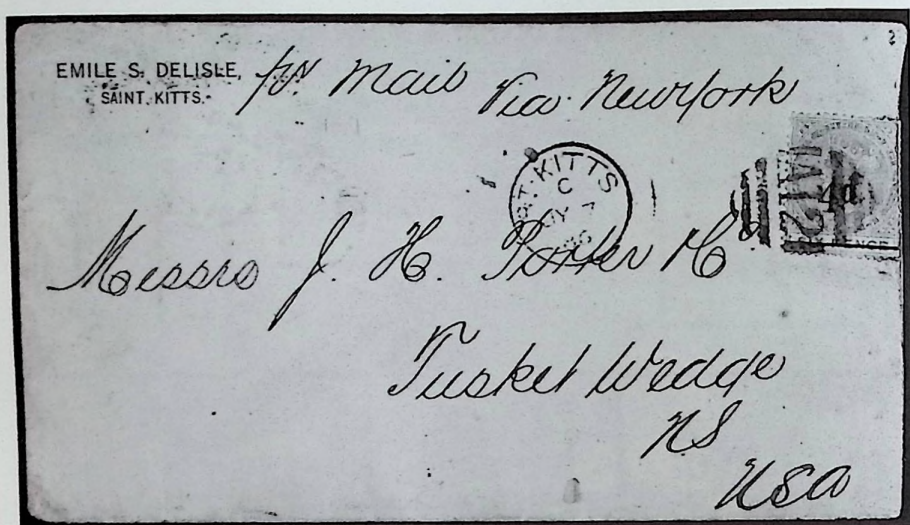 EMILE S. DELISLE,
SAINT. KITTS.
pr. Mail Via New York
ST. KITTS
C
JY 7
A12
4d
Messrs J. H. Porter & Co
Tusket Wedge
NS
USA